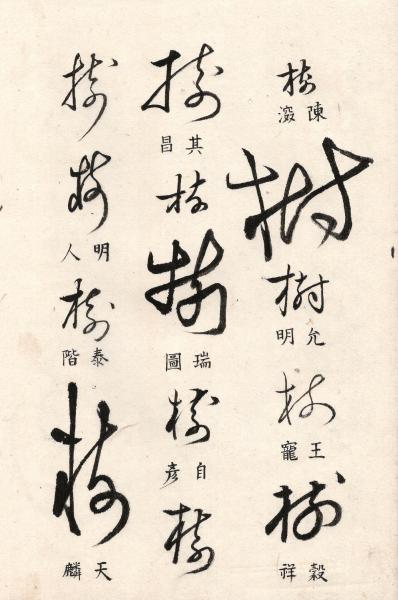 樹
陳
樹
樹
允明
樹
王寵
樹
穀祥
樹
其昌
樹
樹
瑞圖
樹
自彥
樹
樹
樹
明人
樹
泰階
樹
天麟